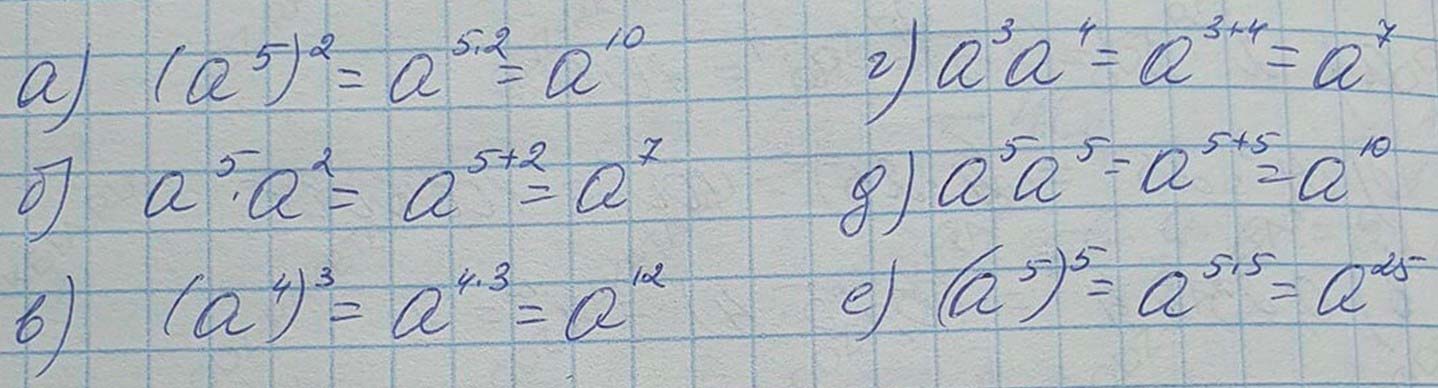 а) (a⁵)² = a⁵·² = a¹⁰
б) a⁵·a² = a⁵⁺² = a⁷
в) (a⁴)³ = a⁴·³ = a¹²
г) a³a⁴ = a³⁺⁴ = a⁷
д) a⁵a⁵ = a⁵⁺⁵ = a¹⁰
е) (a⁵)⁵ = a⁵·⁵ = a²⁵